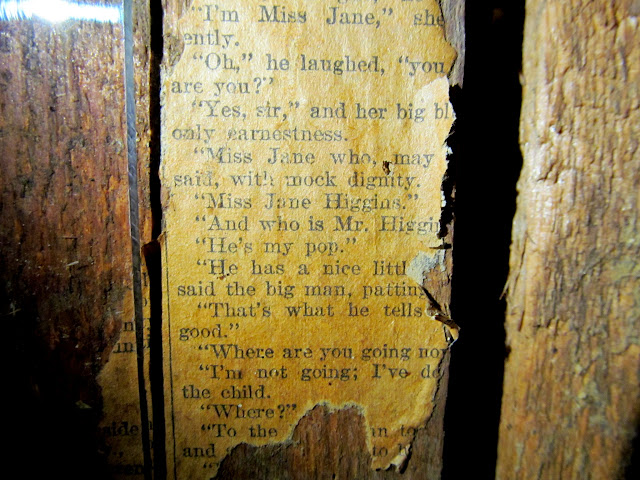 “I'm Miss Jane,” she
ently.
“Oh,” he laughed, “you
are you?”
“Yes, sir,” and her big bl
only earnestness.
“Miss Jane who, may
said, with mock dignity.
“Miss Jane Higgins.”
“And who is Mr. Higgin
“He's my pop.”
“He has a nice littl
said the big man, patting
“That's what he tells
good.”
“Where are you going now
“I'm not going; I've
the child.
“Where?”
“To the
and